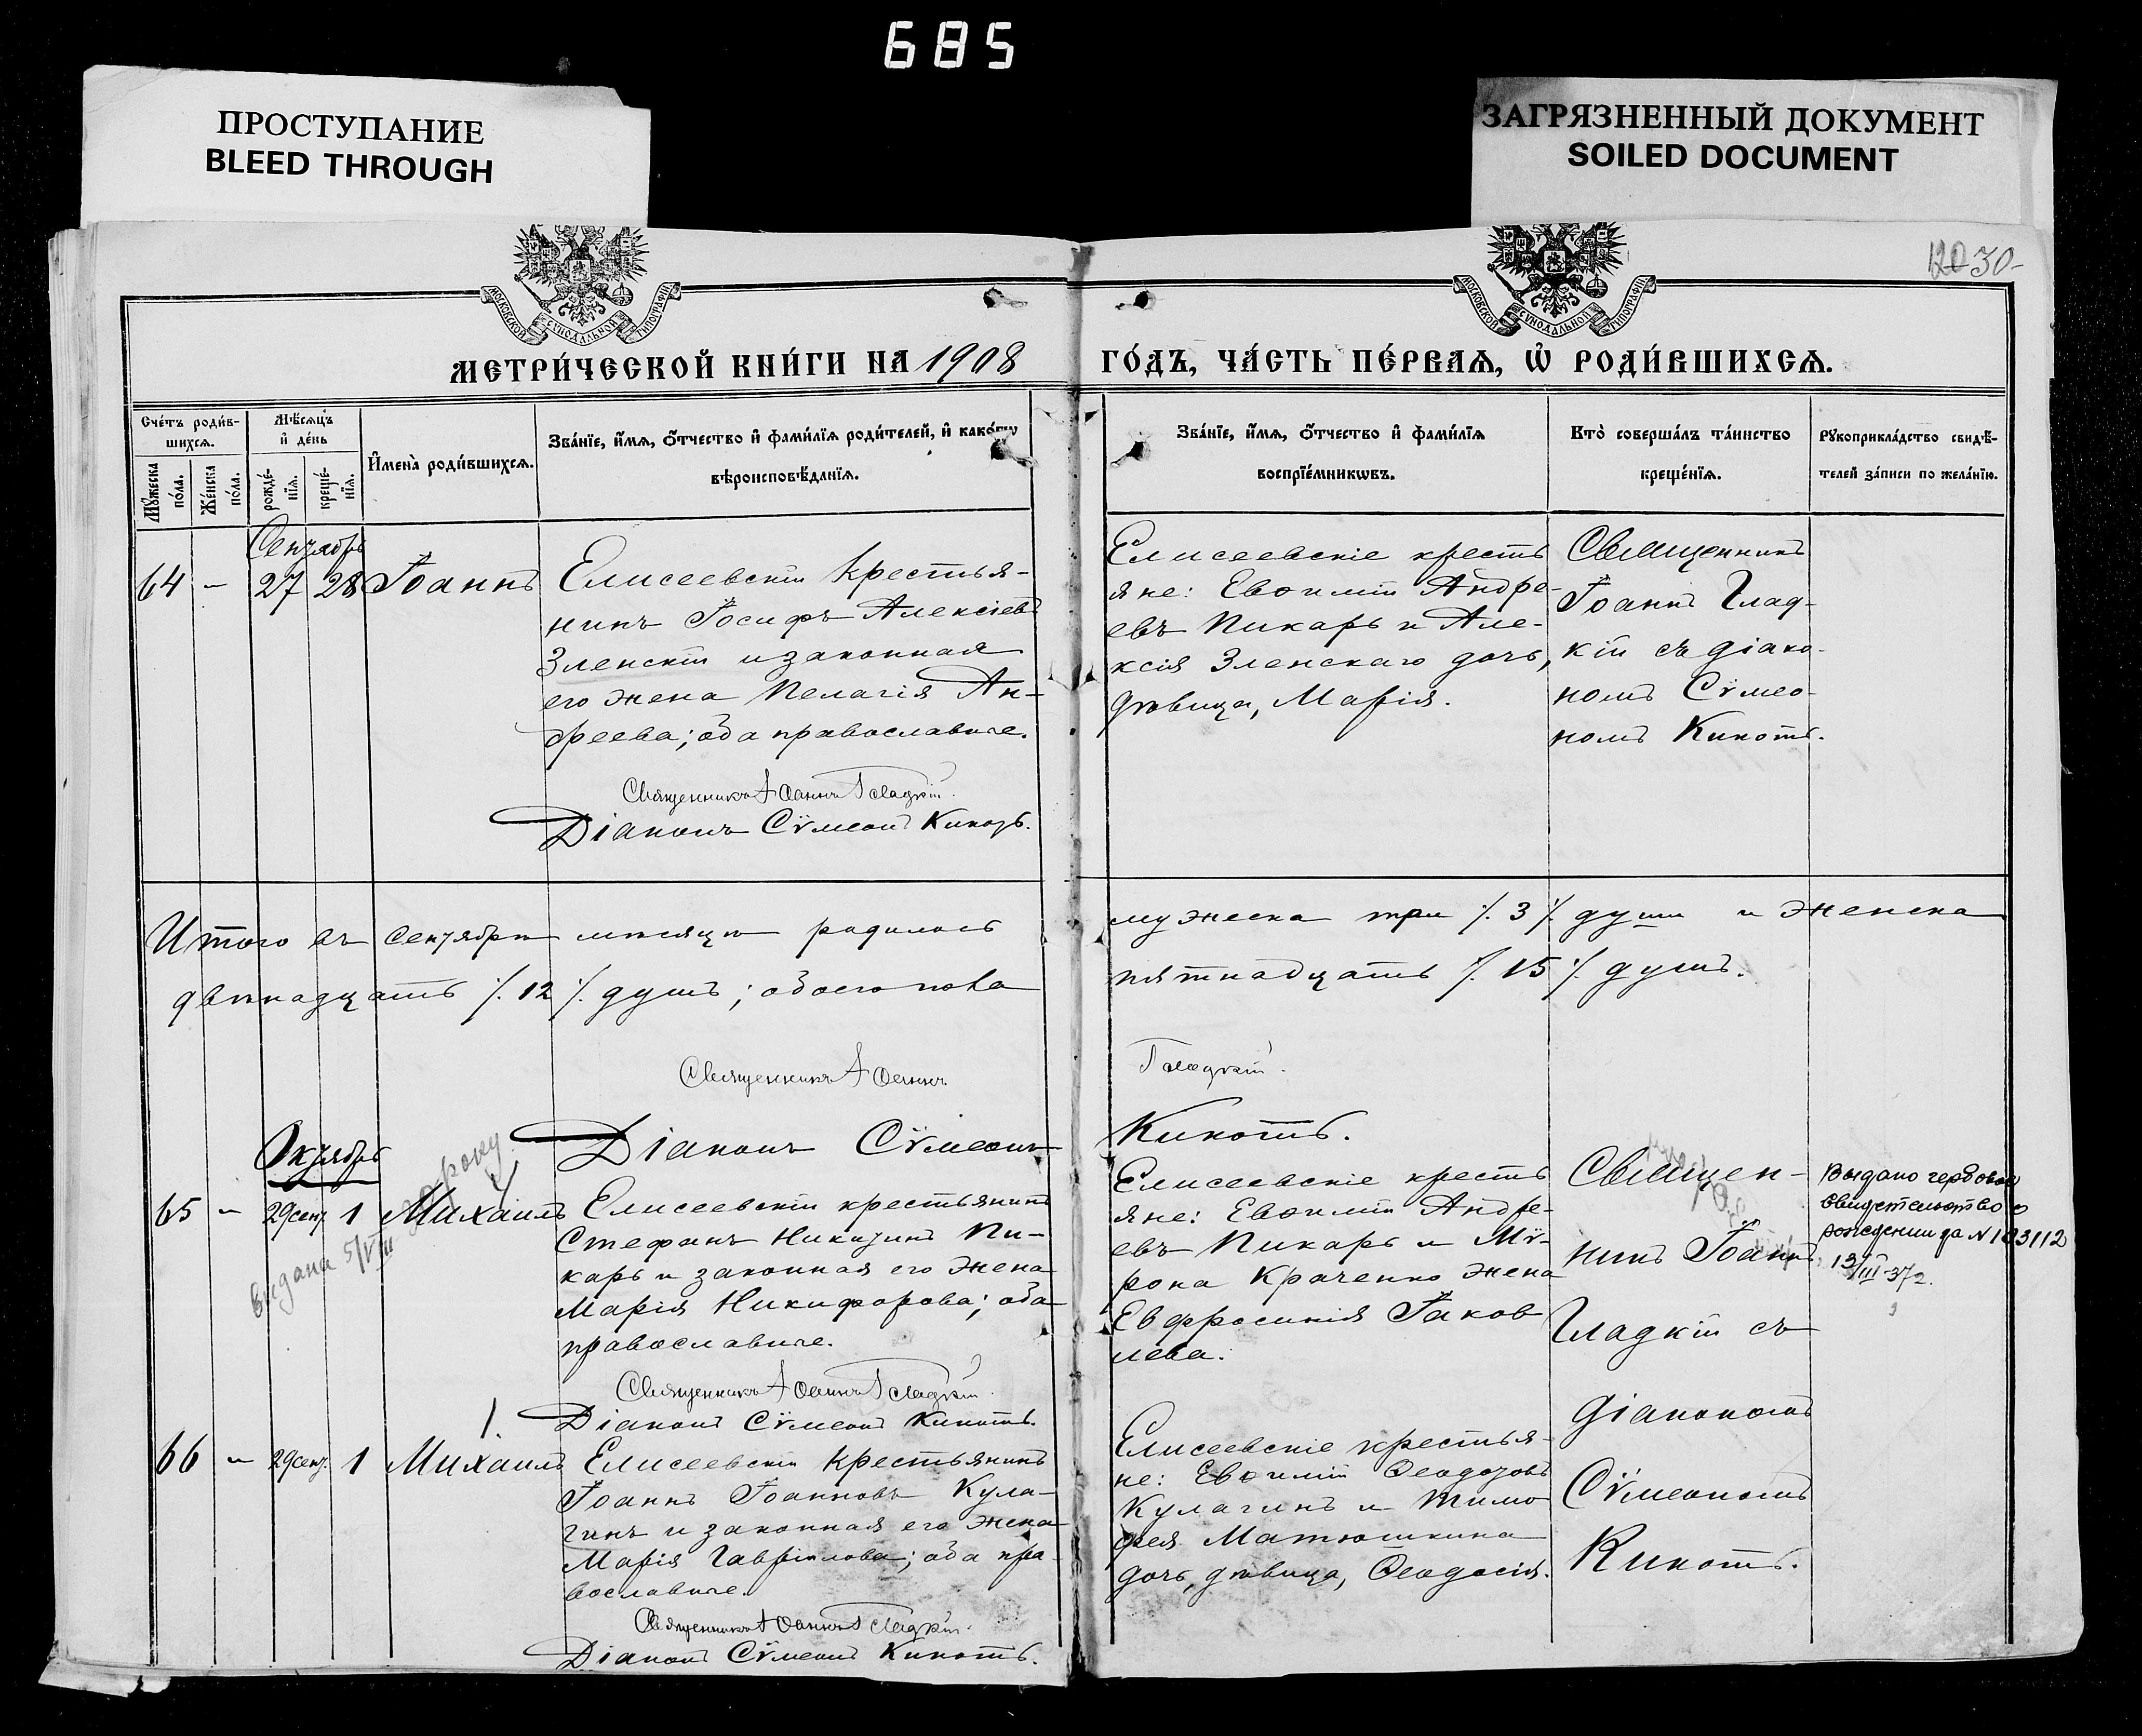 685
ПРОСТУПАНИЕ
BLEED THROUGH
ЗАГРЯЗНЕННЫЙ ДОКУМЕНТ
SOILED DOCUMENT
120 30-
МОСКОВСКОЙ СУНОДАЛЬНОЙ ТИПОГРАФІИ
МОСКОВСКОЙ СУНОДАЛЬНОЙ ТИПОГРАФІИ
МЕТРИ́ЧЕСКОЙ КНИ́ГИ НА 1908
ГО́ДЪ, ЧА́СТЬ ПЕ́РВАЯ, Ѡ҆ РОДИ́ВШИХСЯ.
Сче́тъ роди́в-
шихся.
Мꙋ́жеска по́ла.
Же́нска по́ла.
Мѣ́сяцъ
и҆ де́нь
рожде́-
нїя.
креще́-
нїя.
И҆мена̀ роди́вшихся.
Зва́нїе, и҆́мя, ѻ҆́тчество и҆ фами́лїя роди́телей, и҆ како́гѡ
вѣроисповѣ́данїя.
Зва́нїе, и҆́мя, ѻ҆́тчество и҆ фами́лїя
воспрїе́мникѡвъ.
Кто̀ соверша́лъ та́инство
креще́нїя.
Рꙋкоприкла́дство свидѣ́-
телей за́писи по жела́нїю.
Сентябрь
64 - 27 28 Іоаннъ
Елисеевскій крестья-
нинъ Іосифъ Алексіевъ
Зленскій и законная
его жена Пелагія Ан-
дреева; оба православные.
Священникъ Іоаннъ Гладкій.
Діаконъ Сѵмеонъ Кинотъ.
Елисеевскіе кресть
яне: Евѳимій Андре-
евъ Пикарь и Але-
ксія Зленскаго дочь,
дѣвица, Марія.
Священникъ
Іоаннъ Глад-
кій съ діако-
номъ Сѵмео-
номъ Кинотъ.
Итого въ сентябрѣ мѣсяцѣ родилось
мужеска три /. 3 /. души и женска
двѣнадцать /. 12 /. душъ; обоего пола
пятнадцать /. 15 /. душъ.
Священникъ Іоаннъ
Гладкій.
Діаконъ Сѵмеонъ
Кинотъ.
Октябрь
65 - 29 сент. 1 Михаилъ
Видана 5/VIII
Елисеевскій крестьянинъ
Стефанъ Никитинъ Пи-
карь и законная его жена
Марія Никифорова; оба
православные.
Священникъ Іоаннъ Гладкій.
Діаконъ Сѵмеонъ Кинотъ.
Елисеевскіе кресть
яне: Евѳимій Андре-
евъ Пикарь и Мѵ-
рона Краченко жена
Евфросинія Іаков
лева.
Священ-
никъ Іоаннъ
Гладкій съ
діакономъ
Сѵмеономъ
Кинотъ.
Выдано гербовое
свидетельство о
рождении за N 183112
13/III-37г.
66 - 29 сент. 1 Михаилъ
Елисеевскій крестьянинъ
Іоаннъ Іоанновъ Кула-
гинъ и законная его жена
Марія Гавріилова; оба пра-
вославные.
Священникъ Іоаннъ Гладкій.
Діаконъ Сѵмеонъ Кинотъ.
Елисеевскіе крестья-
не: Евѳимій Ѳеодотовъ
Кулагинъ и Тимо
фея Матюшкина
дочь, дѣвица, Ѳеодосія.